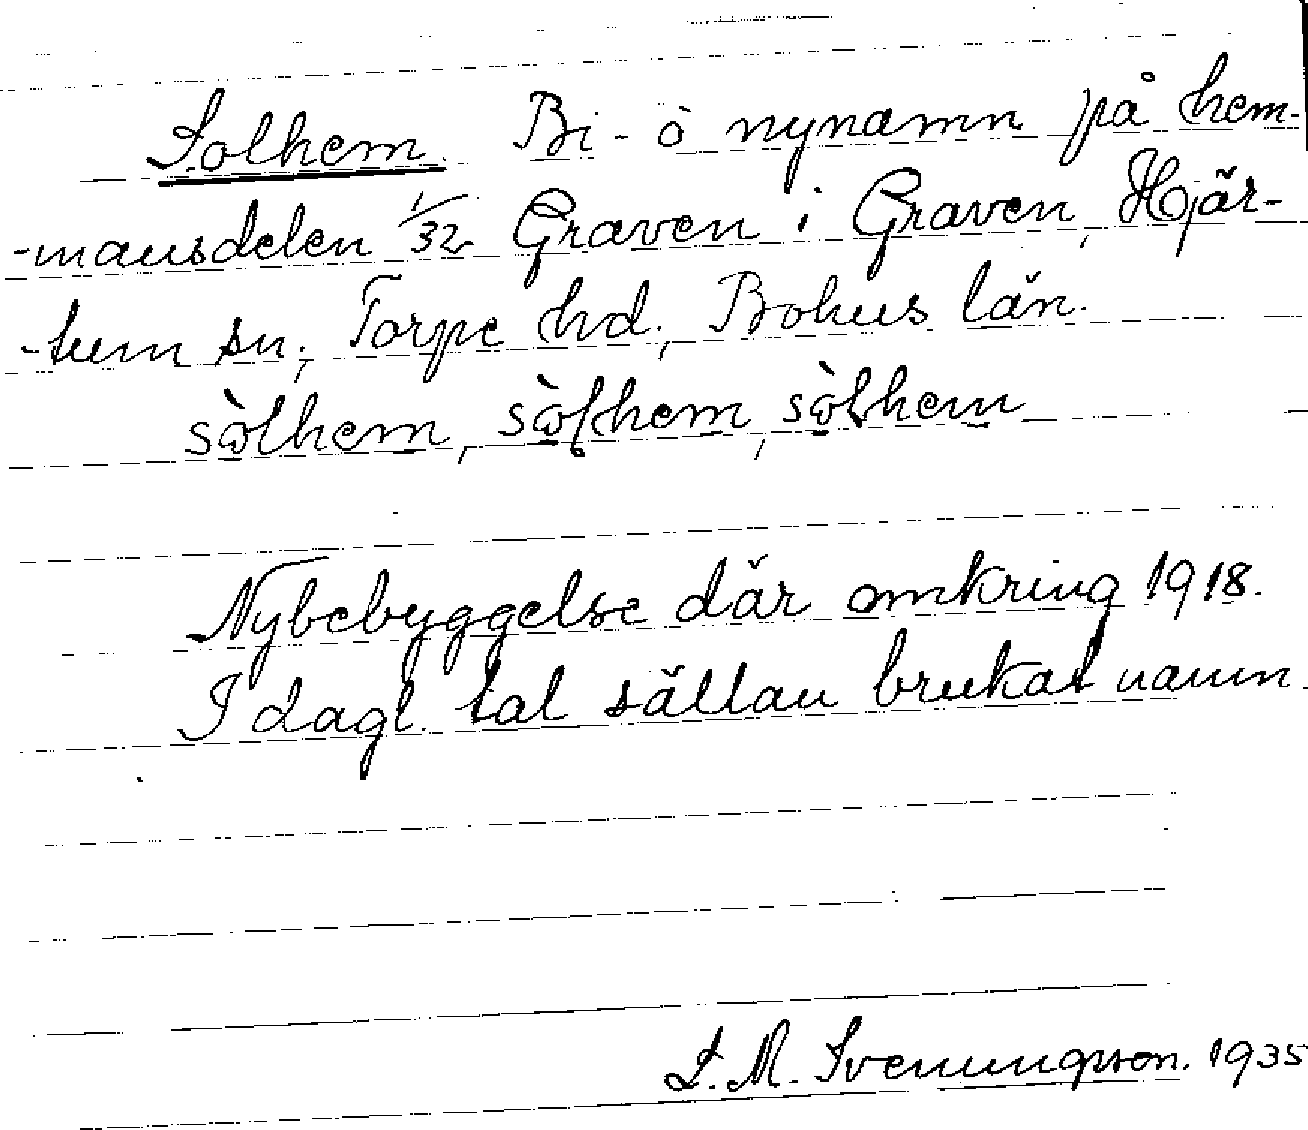 Solhem. Bi- o nynamn på hem-
-mansdelen 1/32 Graven i Graven, Hjär-
-tum sn; Torpe hd., Bohus län.
sòlhem, sòlhem, sòlhem
Nybebyggelse där omkring 1918.
I dagl. tal sällan brukat namn
S. M. Svenungsson. 1935